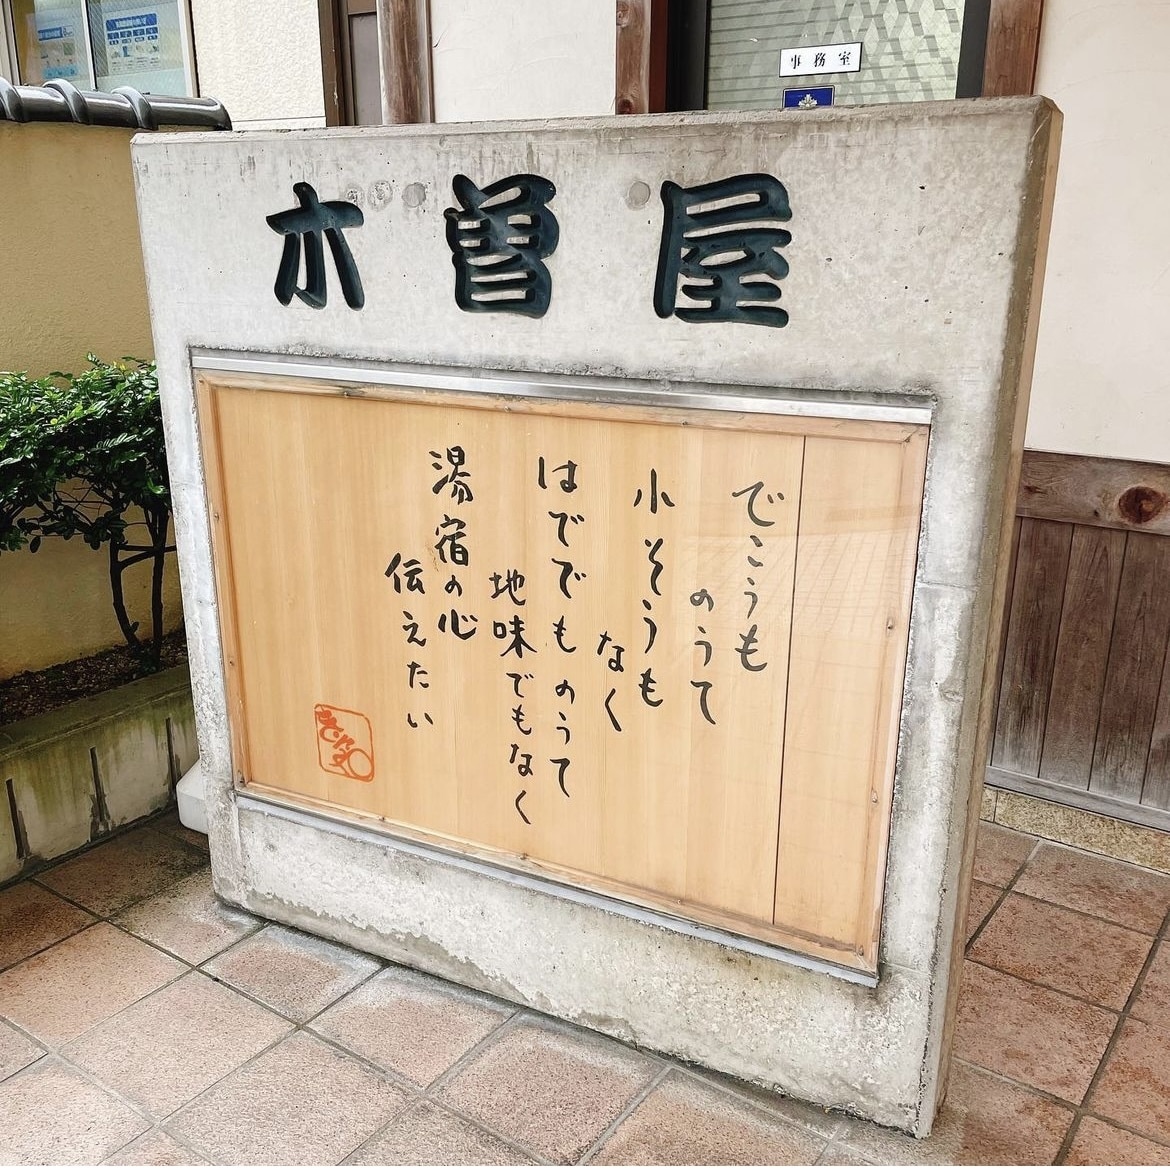 事務室
木曽屋
でこうも
のうて
小そうも
なく
はででも のうて
地味でもなく
湯宿の心
伝えたい